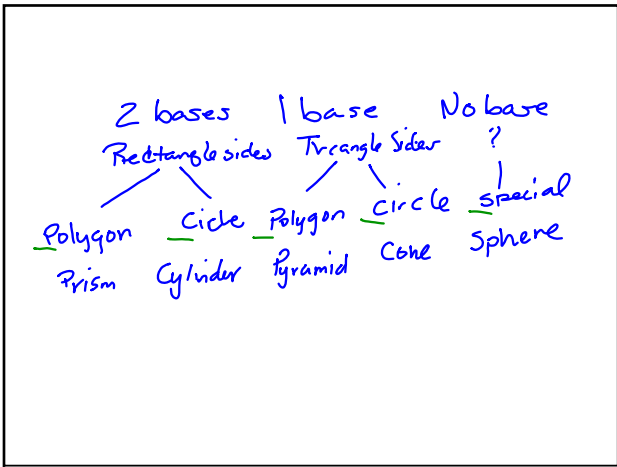 2 bases 1 base No base
Rectangle sides Triangle Sides ?
Polygon Cicle Polygon Circle special
Prism Cylinder Pyramid Cone Sphere